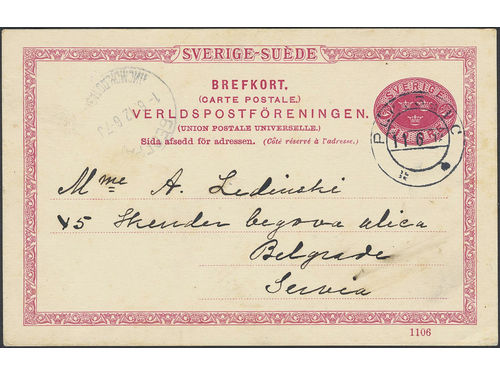 SVERIGE-SUÈDE
BREFKORT.
(CARTE POSTALE.)
VERLDSPOSTFÖRENINGEN.
(UNION POSTALE UNIVERSELLE.)
Sida afsedd för adressen. (Côté réservé à l'adresse.)
SVERIGE
11 6
Mme A. Ledinski
45 Skender begova ulica
Belgrade
Servia
1106